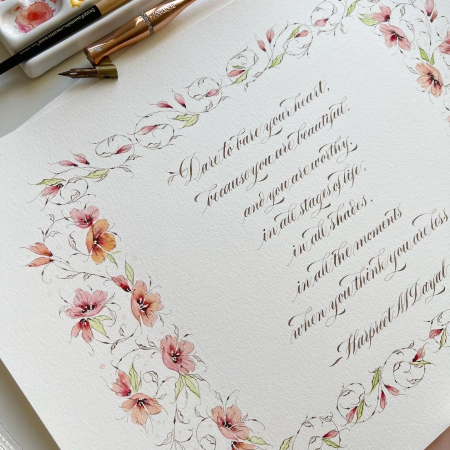 Dare to bare your heart,
because you are beautiful
and you are worthy
in all stages of life,
in all shades,
in all the moments
when you think you are less
-Harpreet M Dayal